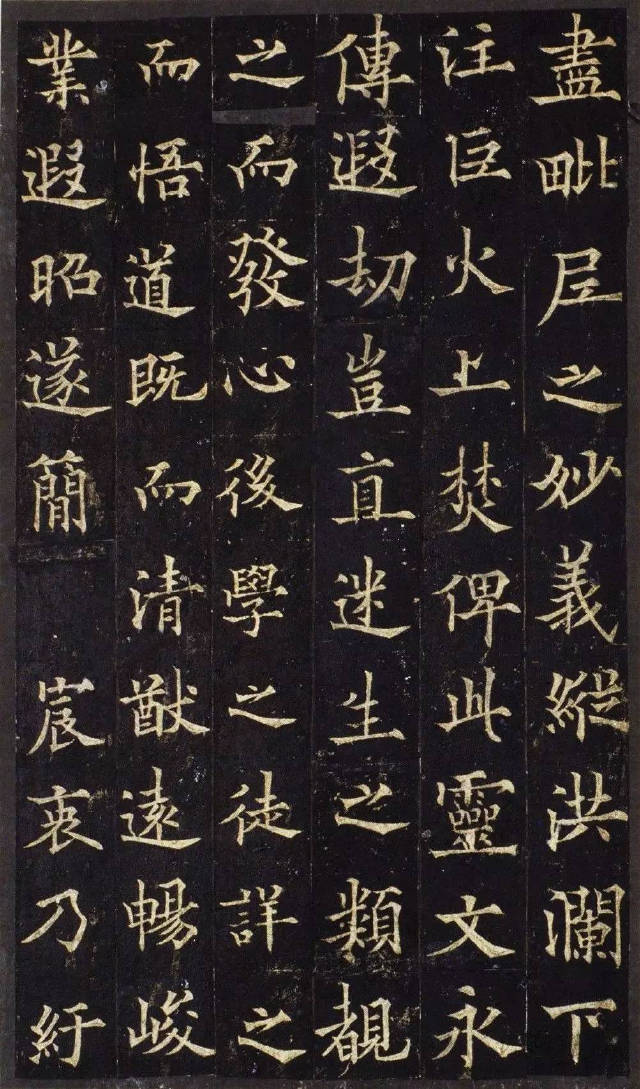 盡毗尼之妙義縱洪瀾下
注巨火上焚俾此靈文永
傳遐刼豈直迷生之類覩
之而發心後學之徒詳之
而悟道既而清猷遠暢峻
業遐昭遂簡 宸衷乃紆